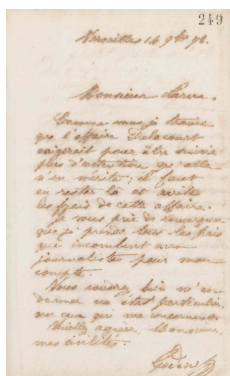 249
Versailles 16 9bre 92
Monsieur
Comme vous je trouve
que l'affaire Delacourt
exigerait pour être suivie
plus d'attention qu'elle
n'en mérite; il faut
en rester là et
les frais de cette affaire.
Je vous prie de remarquer
que je prends tous les frais
qui incombent au
journaliste pour mon
compte.
Vous voudrez bien m'en
donner un état particulier,
avec ceux qui me concernent.
Veuillez agréer Monsieur,
mes civilités.
Godin